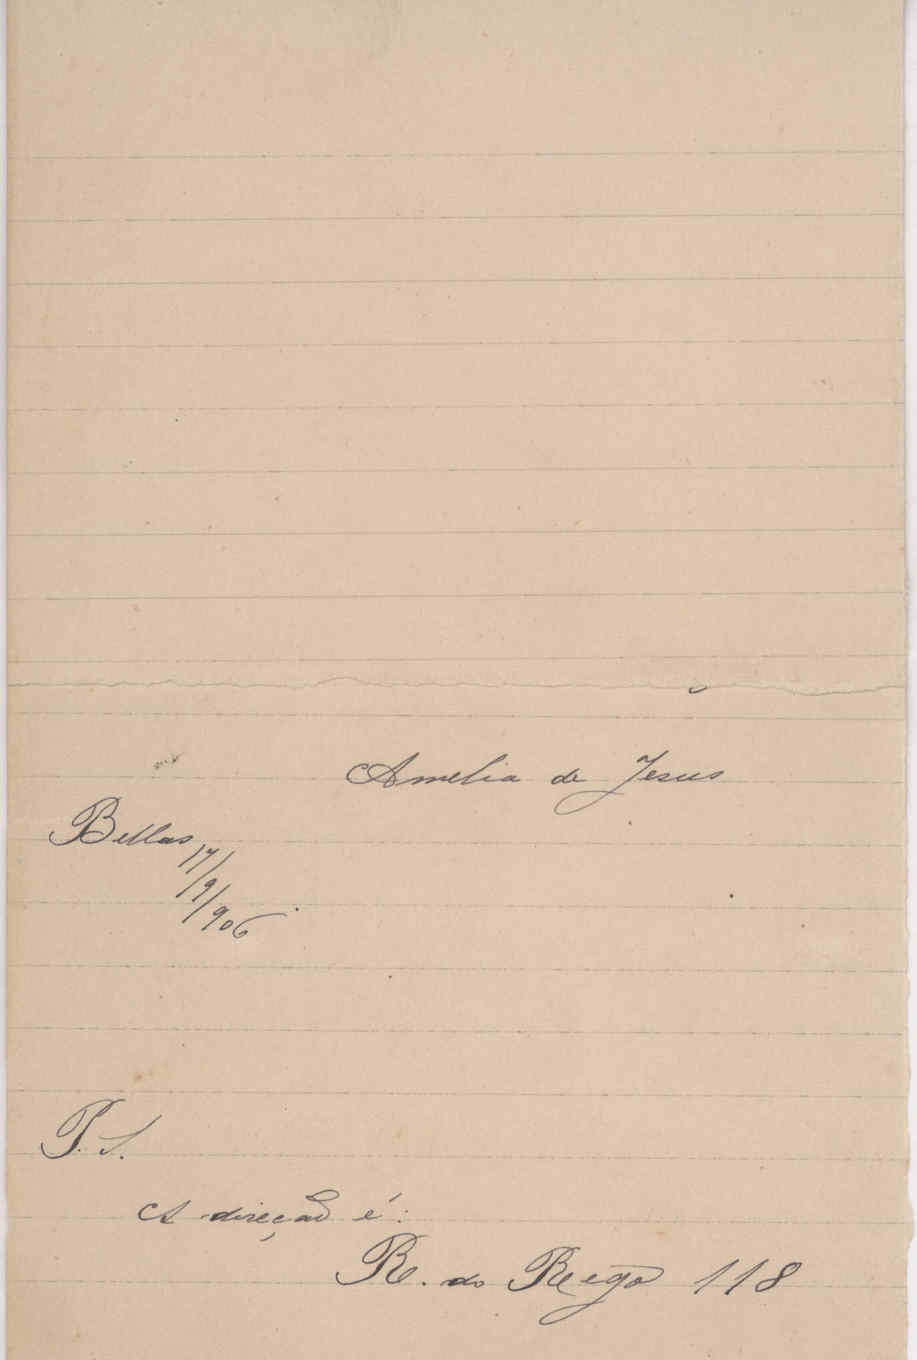 Amelia de Jesus
Bellas 17/9/906
P. S.
A direcção é:
R. do Rego 118